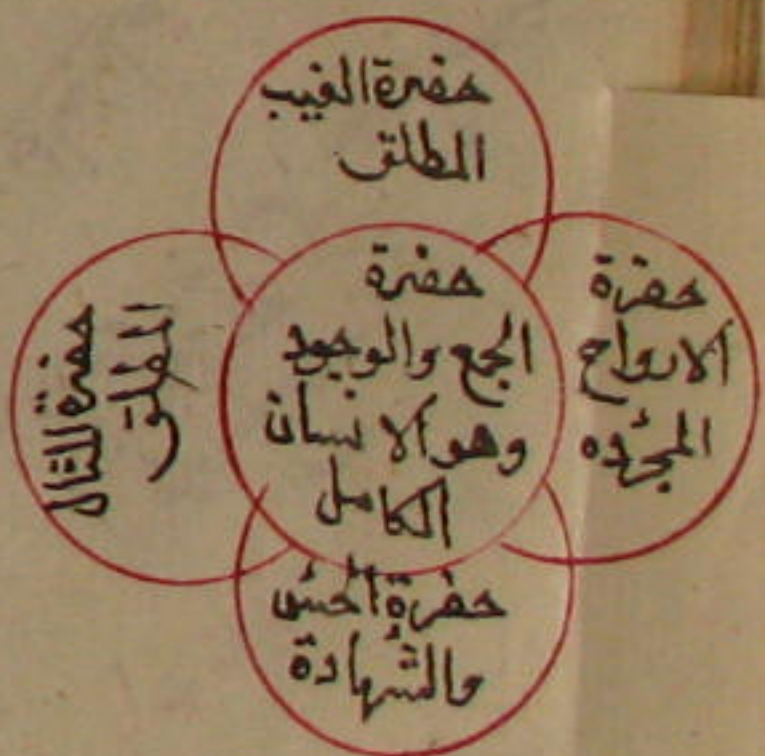 حضرة الغيب
المطلق
حضرة
الارواح
المجرّده
حضرة
الجمع والوجود
وهو الانسان
الكامل
حضرة المثال
المطلق
حضرة الحسّ
والشهادة